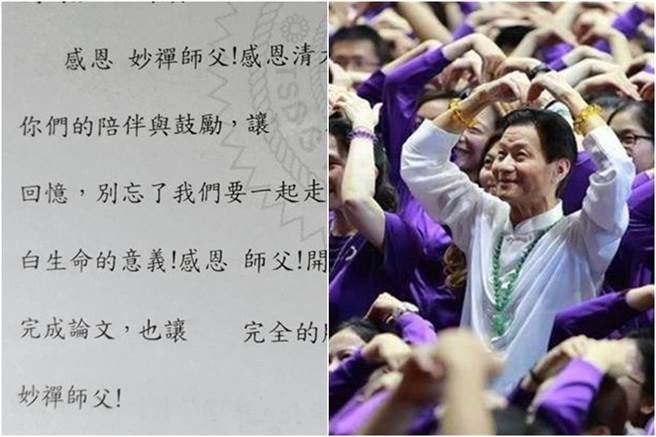 感恩 妙禪師父!感恩清
你們的陪伴與鼓勵,讓
回憶,別忘了我們要一起走
白生命的意義!感恩 師父!開
完成論文,也讓 完全的
妙禪師父!